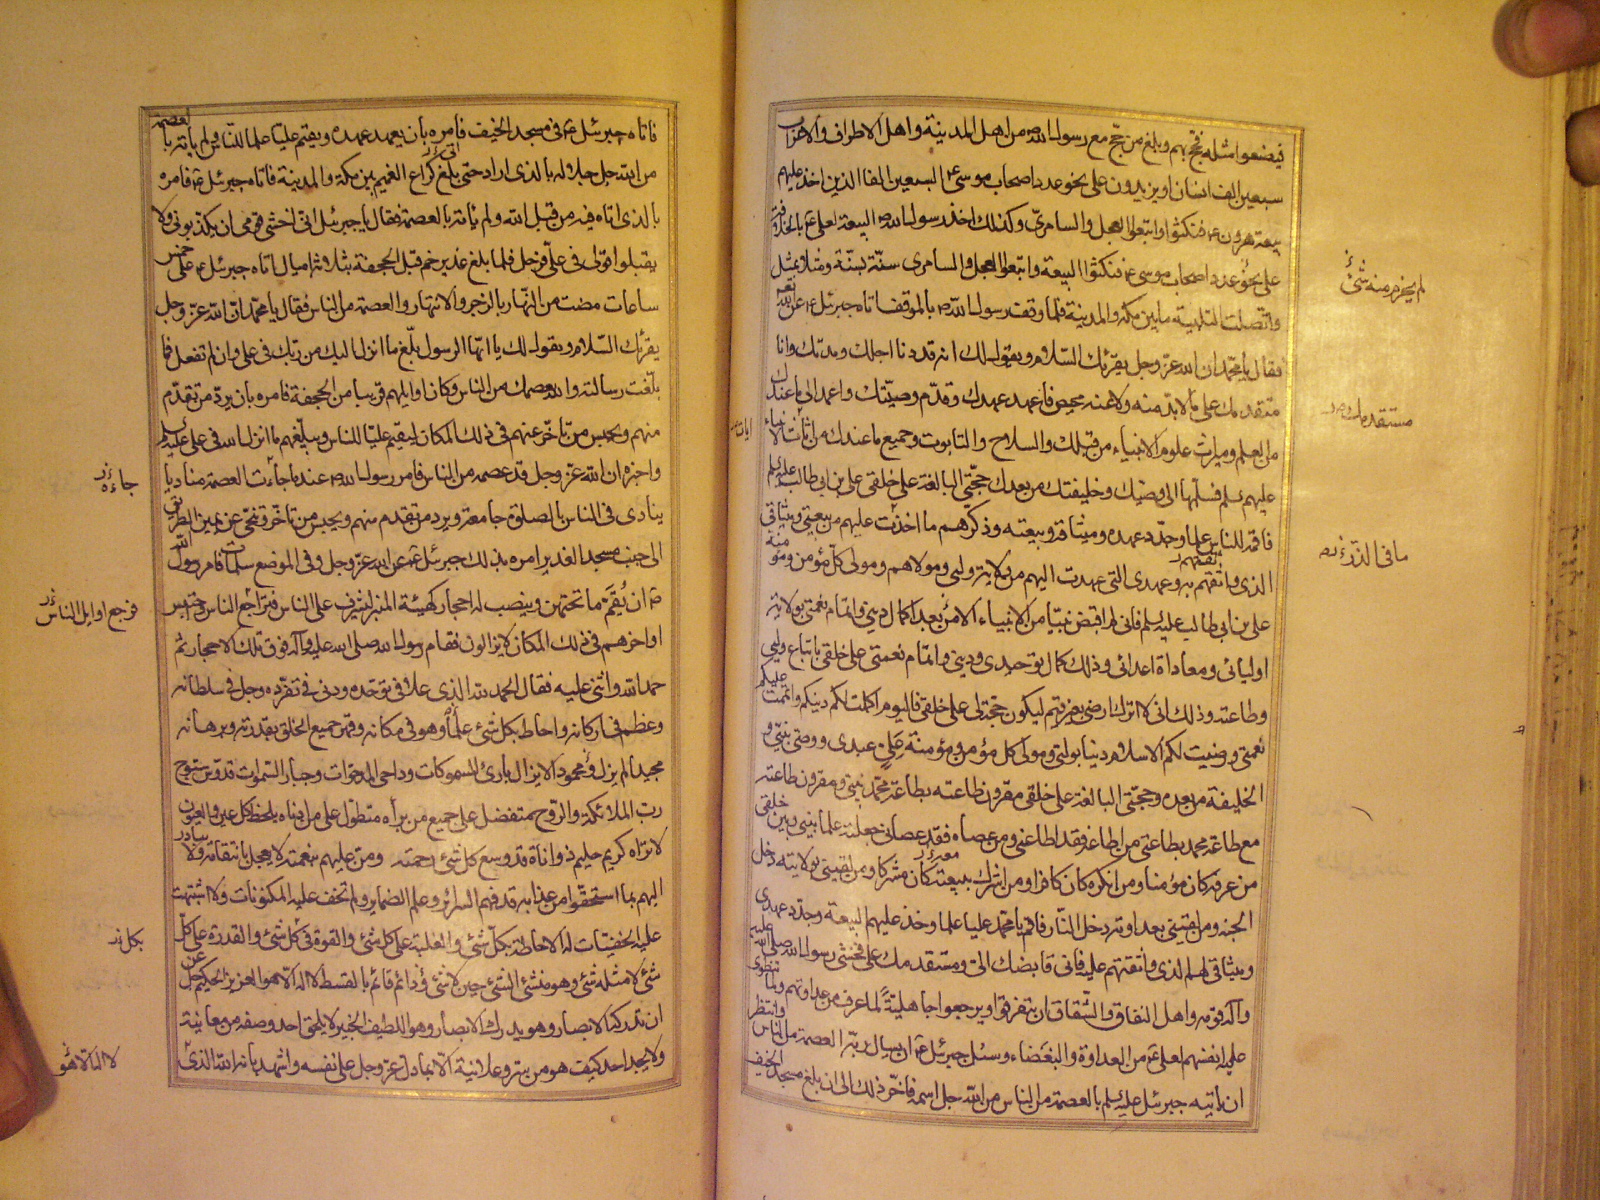 فيصنعوا مثله فحج بهم وبلغ من حج مع رسول الله ص من اهل المدينة واهل الاطراف والاعراب
سبعين الف انسان او يزيدون على نحو عدد اصحاب موسى ع السبعين الفا الذين اخذ عليهم
بيعة هرون ع فنكثوا واتبعوا العجل والسامري وكذلك اخذ رسول الله ص البيعة لعلي ع بالخلافة
على نحو عدد اصحاب موسى ع فنكثوا البيعة واتبعوا العجل والسامري سنة بسنة ومثلا بمثل
واتصلت التلبية ما بين مكة والمدينة فلما وقف رسول الله ص بالموقف اتاه جبرئل ع عن الله تعه
فقال يا محمد ان الله عز وجل يقرئك السلام ويقول لك انه قد دنا اجلك ومدتك وانا
مستقدمك على ما لا بد منه ولا عنه محيص فاعهد عهدك وقدم وصيتك واعمد الى ما عندك
من العلم وميراث علوم الانبياء من قبلك والسلاح والتابوت وجميع ما عندك من ايات الانبياء
عليهم سلم فسلمها الى وصيك وخليفتك من بعدك حجتي البالغة على خلقي علي بن ابي طالب عليه سلم
فاقمه للناس علما وجدد عهده وميثاقه وبيعته وذكرهم ما اخذت عليهم من بيعتي وميثاقي
الذي واثقتهم به وعهدي التي عهدت اليهم من ولاية وليي ومولاهم ومولى كل مؤمن ومؤمنة
علي بن ابي طالب عليه سلم فاني لم اقبض نبيا من الانبياء الا من بعد اكمال ديني واتمام نعمتي بولاية
اوليائي ومعاداة اعدائي وذلك كمال توحيدي وديني واتمام نعمتي على خلقي باتباع وليي
وطاعته وذلك اني لا اترك ارضي بغير قيم ليكون حجة لي على خلقي فاليوم اكملت لكم دينكم واتممت عليكم
نعمتي ورضيت لكم الاسلام دينا بوليي ومولى كل مؤمن ومؤمنة علي عبدي ووصي نبيي و
الخليفة من بعده وحجتي البالغة على خلقي مقرون طاعته بطاعة محمد نبيي ومقرون طاعته
مع طاعة محمد بطاعتي من اطاعه فقد اطاعني ومن عصاه فقد عصاني جعلته علما بيني وبين خلقي
من عرفه كان مؤمنا ومن انكره كان كافرا ومن اشرك ببيعته كان مشركا ومن لقيني بولايته دخل
الجنة ومن لقيني بعداوته دخل النار فاقم يا محمد عليا علما وخذ عليهم البيعة وجدد عهدي
وميثاقي لهم الذي واثقتهم عليه فاني قابضك الي ومستقدمك علي فخشي رسول الله صلى الله عليه
وآله قومه واهل النفاق والشقاق ان يتفرقوا ويرجعوا جاهلية لما عرف من عداوتهم ولما تنطوي
عليه انفسهم لعلي ع من العداوة والبغضاء وسئل جبرئل ع ان يسال ربه العصمة من الناس وانتظر
ان ياتيه جبرئل عليه سلم بالعصمة من الناس من الله جل اسمه فاخر ذلك الى ان بلغ مسجد الخيف
لم يخرم منه شئ
مستقدمك
ما في
فاتاه جبرئل ع في مسجد الخيف فامره بان يعهد عهده ويقيم عليا علما للناس ولم ياته بالعصمة
من الله جل جلاله بالذي اراد حتى بلغ كراع الغميم بين مكة والمدينة فاتاه جبرئل ع فامره
بالذي اتاه فيه من قبل الله ولم ياته بالعصمة فقال يا جبرئل اني اخشى قومي ان يكذبوني ولا
يقبلوا قولي في علي فرحل فلما بلغ غدير خم قبل الجحفة بثلاثة اميال اتاه جبرئل ع على خمس
ساعات مضت من النهار بالزجر والانتهار والعصمة من الناس فقال يا محمد ان الله عز وجل
يقرئك السلام ويقول لك يا ايها الرسول بلغ ما انزل اليك من ربك في علي وان لم تفعل فما
بلغت رسالته والله يعصمك من الناس وكان اوايلهم قريبا من الجحفة فامره بان يرد من تقدم
منهم ويحبس من تاخر عنهم في ذلك المكان ليقيم عليا للناس ويبلغهم ما انزل الله في علي عليه سلم
واخبره ان الله عز وجل قد عصمه من الناس فامر رسول الله ص عند ما جاءت العصمة مناديا
ينادي في الناس بالصلوة جامعة ويرد من تقدم منهم ويحبس من تاخر وتنحى عن يمين الطريق
الى جنب مسجد الغدير امره بذلك جبرئل ع عن الله عز وجل وفي الموضع سلمات فامر رسول الله
ص ان يقم ما تحتهن وينصب له احجار كهيئة المنبر ليشرف على الناس فتراجع الناس واحتبس
اواخرهم في ذلك المكان لا يزالون فقام رسول الله صلى الله عليه وآله فوق تلك الاحجار ثم
حمد الله واثنى عليه فقال الحمد لله الذي علا في توحده ودنى في تفرده وجل في سلطانه
وعظم في اركانه واحاط بكل شئ علما وهو في مكانه وقهر جميع الخلق بقدرته وبرهانه
مجيدا لم يزل ومحمودا لا يزال بارئ المسموكات وداحي المدحوات وجبار السموات قدوس سبوح
رب الملائكة والروح متفضل على جميع من براه متطول على من ادناه يلحظ كل عين والعيون
لا تراه كريم حليم ذو اناة قد وسع كل شئ رحمته ومن عليهم بنعمته لا يعجل بانتقامه ولا يبادر
اليهم بما استحقوا من عذابه قد فهم السرائر وعلم الضماير ولم تخف عليه المكنونات ولا اشتبهت
عليه الخفيات له الاحاطة بكل شئ والغلبة على كل شئ والقوة في كل شئ والقدرة على كل
شئ لا مثله شئ وهو منشئ الشئ حين لا شئ دائم قائم بالقسط لا اله الا هو العزيز الحكيم جل عن
ان تدركه الابصار وهو يدرك الابصار وهو اللطيف الخبير لا يلحق احد وصفه من معاينة
ولا يجد احد كيف هو من سر وعلانية الا بما دل عز وجل على نفسه واشهد بانه الله الذي
جاءه
فرجع اوايل الناس
بكل
لا اله الا هو